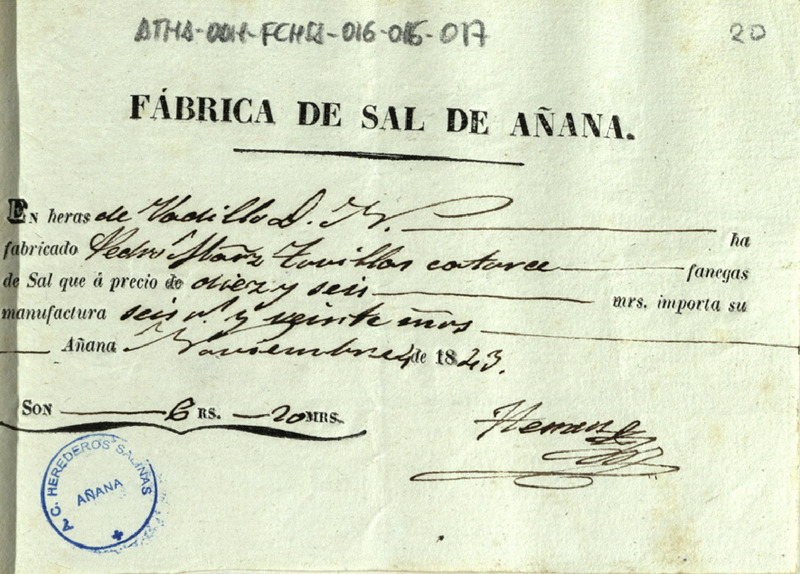 ATHA-DAH-FCHSA-016-015-017
20
FÁBRICA DE SAL DE AÑANA.
EN heras de Vadillo D. N. ha
fabricado Pedro catorce fanegas
de Sal que á precio de diez y seis mrs. importa su
manufactura seis rs. y veinte mrs
Añana Noviembre 4 de 1823.
SON 6 RS. 20 MRS.
Hernandez
A. C. HEREDEROS SALINAS
AÑANA